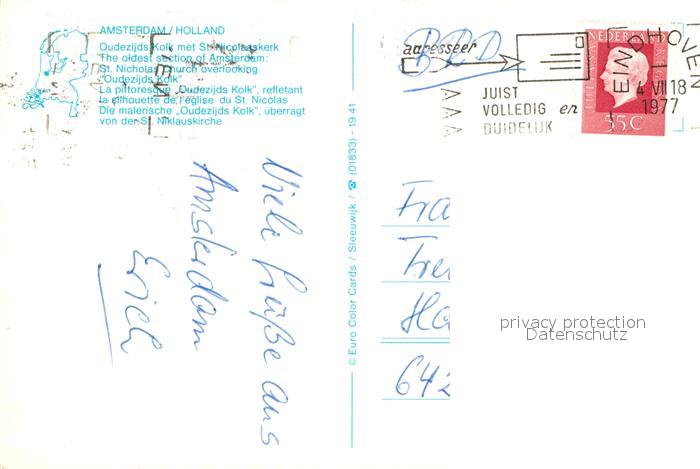 AMSTERDAM / HOLLAND
Oudezijds Kolk met St. Nicolaaskerk
The oldest section of Amsterdam:
St. Nicholas Church overlooking
"Oudezijds Kolk"
La pittoresque „Oudezijds Kolk", reflétant
la silhouette de l'église du St. Nicolas
Die malerische „Oudezijds Kolk", überragt
von der St. Niklauskirche
Viele Grüße aus
Amsterdam
Erich
© Euro Color Cards / Sleeuwijk / ☎ (01833) - 19 41
BRD
adresseer
JUIST
VOLLEDIG en
DUIDELIJK
NEDERLAND
55C
EINDHOVEN
4 VII 18
1977
Fra
Fre
Ha
642
privacy protection
Datenschutz